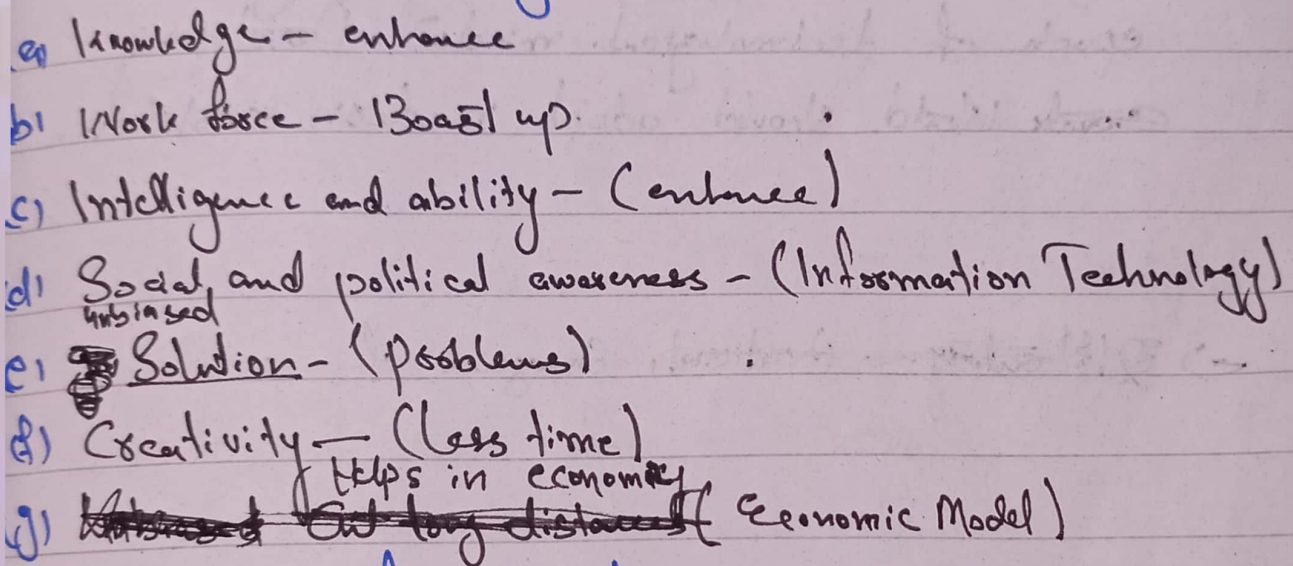 a) Knowledge - enhance
b) Work force - Boast up.
c) Intelligence and ability - (enhance)
d) Social and political awareness - (Information Technology)
unbiased
e) Solution - (problems)
f) Creativity - (Less time)
Helps in economy
g) (Economic Model)